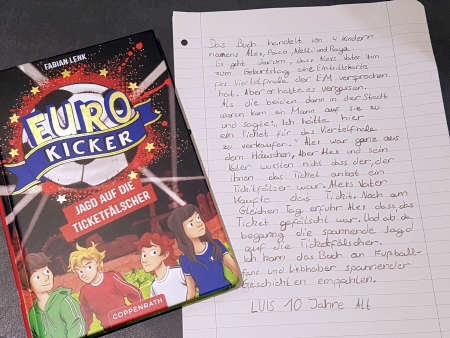 FABIAN LENK
EURO
KICKER
JAGD AUF DIE
TICKETFÄLSCHER
COPPENRATH
Das Buch handelt von 4 Kindern
namens Alex, Paco, Nelli und Raya.
Es geht darum, dass Alex Vater ihm
zum Geburtstag eine Eintrittskarte
fürs Viertelfinale der EM versprochen
hat. Aber er hatte es vergessen.
Als die beiden dann in der Stadt
waren kam ein Mann auf sie zu
und sagte: „Ich hätte hier
ein Ticket für das Viertelfinale
zu verkaufen." Alex war ganz aus
dem Häuschen, aber Alex und sein
Vater wussten nicht dass der, der
ihnen das Ticket anbot ein
Ticketfälser war. Alex Vater
kaufte das Ticket. Noch am
Gleichen Tag erfuhr Alex dass, das
Ticket gefälscht war. Und ab da
begann die spannende Jagd
auf die Ticketfälscher.
Ich kann das Buch an Fußball-
fans und Liebhaber spannender
Geschichten empfahlen.
LUIS 10 Jahre Alt